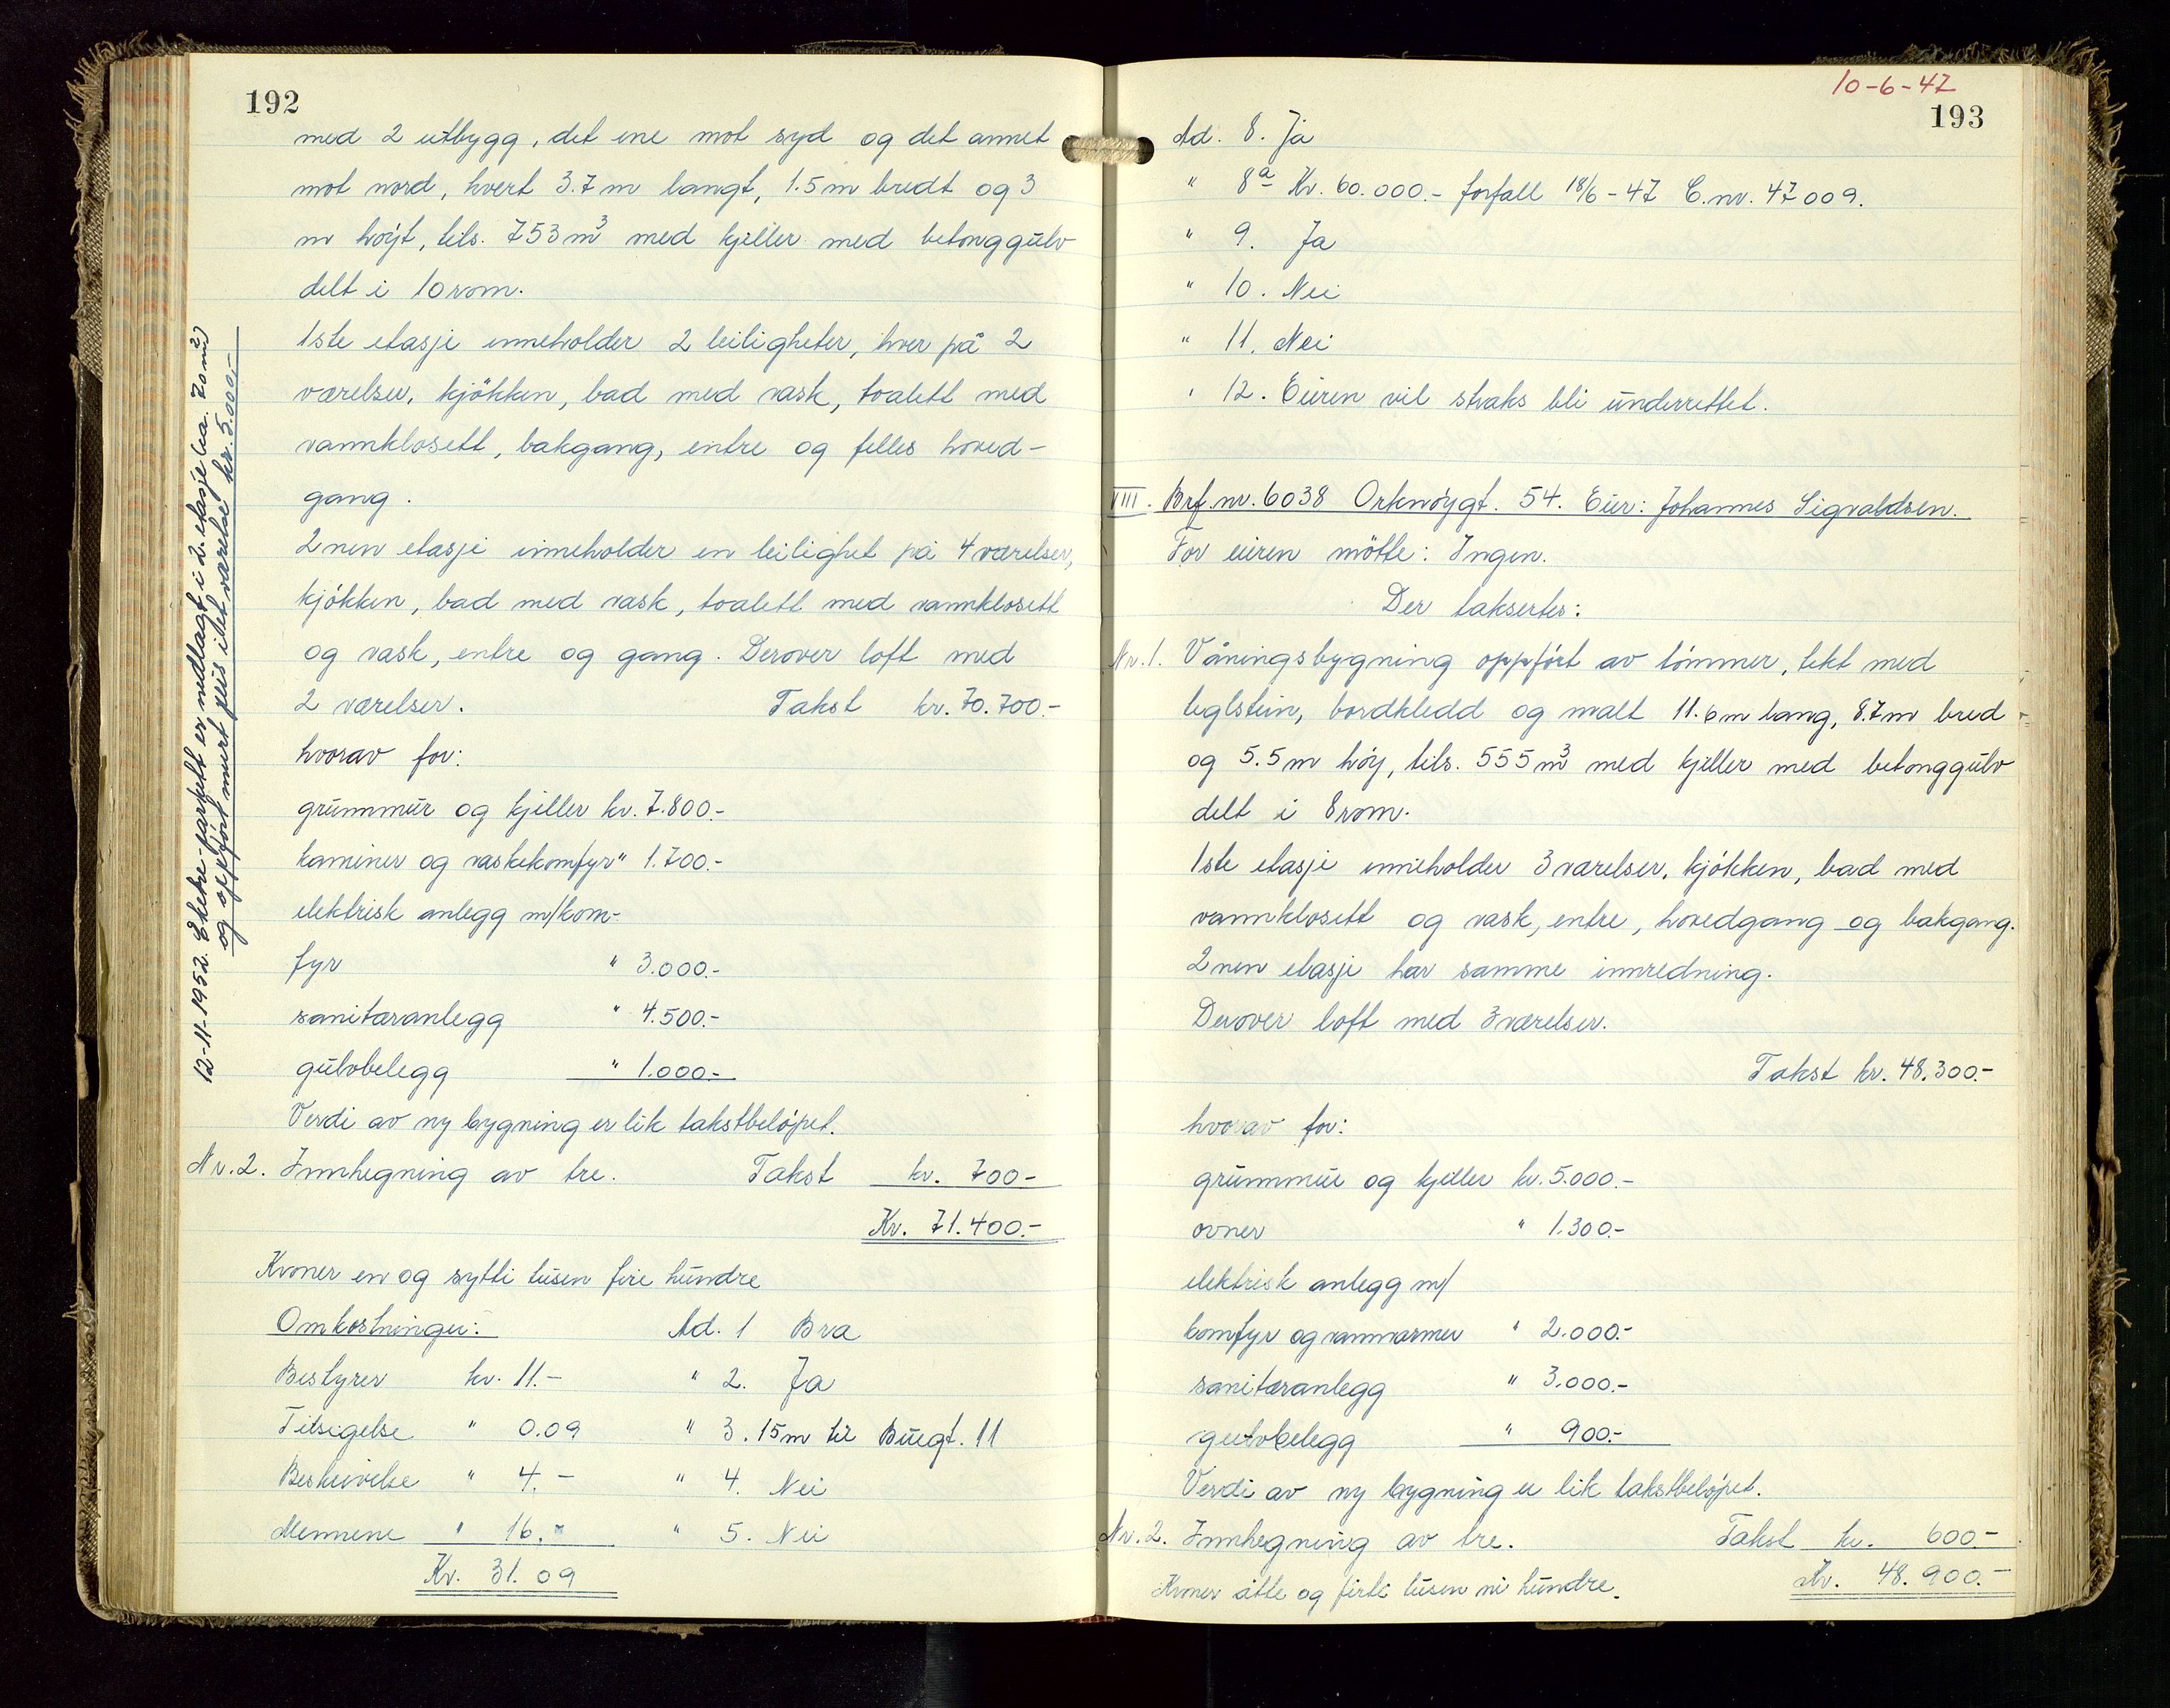 192
med 2 utbygg, det ene mot syd og det annet
mot nord, hvert 3.7 m langt, 1.5 m bredt og 3
m høyt, tils. 753 m³ med kjeller med betonggulv
delt i 10 rom.
1ste etasje inneholder 2 leiligheter, hver på 2
værelser, kjøkken, bad med vask, toalett med
vannklosett, bakgang, entre og felles hoved-
gang.
2nen etasje inneholder en leilighet på 4 værelser,
kjøkken, bad med vask, toalett med vannklosett
og vask, entre og gang. Derover loft med
2 værelser. Takst kr. 70.700.-
hvorav for:
grunnmur og kjeller kr. 7.800.-
kaminer og vaskekomfyr " 1.700.-
elektrisk anlegg m/kom-
fyr " 3.000.-
sanitæranlegg " 4.500.-
gulvbelegg " 1.000.-
Verdi av ny bygning er lik takstbeløpet.
Nr. 2. Innhegning av tre. Takst kr. 700.-
Kr. 71.400.-
Kroner en og sytti tusen fire hundre
Omkostninger: Ad. 1 Bra
Bestyrer kr. 11.- " 2. Ja
Tilsigelse " 0.09 " 3. 15m til Buegt. 11
Beskrivelse " 4.- " 4. Nei
Mennene " 16.- " 5. Nei
Kr. 31.09
12-11-1952. Ekeke-parkett er nedlagt i 2. etasje (ca. 70 m²)
og oppført murt peis i det værelse kr. 5.000.-
10-6-47
193
Ad. 8. Ja
" 8a Kr. 60.000.- forfall 18/6-47 C.nr. 47009.
" 9. Ja
" 10. Nei
" 11. Nei
" 12. Eieren vil straks bli underrettet.
VIII. Brf. nr. 6038 Orknøygt. 54. Eier: Johannes Sigvaldsen.
For eieren møtte: Ingen.
Der taksertes:
Nr. 1. Våningsbygning oppført av tømmer, tekt med
teglstein, bordkledd og malt 11.6 m lang, 8.7 m bred
og 5.5 m høy, tils. 555 m³ med kjeller med betonggulv
delt i 8 rom.
1ste etasje inneholder 3 værelser, kjøkken, bad med
vannklosett og vask, entre, hovedgang og bakgang.
2nen etasje har samme innredning.
Derover loft med 3 værelser.
Takst kr. 48.300.-
hvorav for:
grunnmur og kjeller kr. 5.000.-
ovner " 1.300.-
elektrisk anlegg m/
komfyr og vannvarmer " 2.000.-
sanitæranlegg " 3.000.-
gulvbelegg " 900.-
Verdi av ny bygning er lik takstbeløpet.
Nr. 2. Innhegning av tre. Takst kr. 600.-
Kroner åtte og førti tusen ni hundre. Kr. 48.900.-